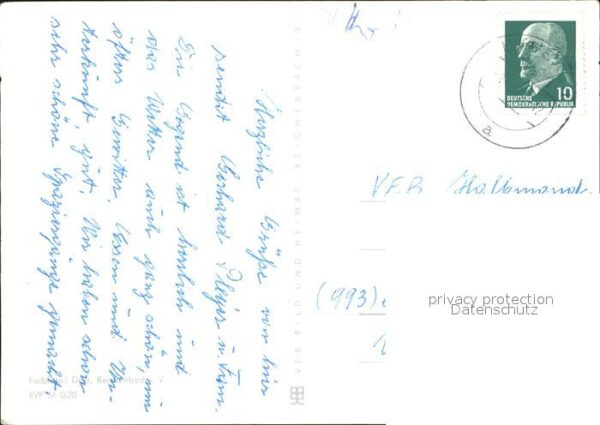 Herzliche Grüße von hier
sendet Gerhard u. Fam.
Die Gegend ist herrlich und
das Wetter auch ganz schön, nur
öfters Gewitter. Essen und Un-
terkunft gut. Wir haben schon
sehr schöne Spaziergänge gemacht.
VEB BILD UND HEIMAT REICHENBACH I. V.
10
DEUTSCHE
DEMOKRATISCHE REPUBLIK
a
VEB Halbmond-
(993)
privacy protection
Datenschutz
Reichenbach i. V.
EVP M 0.20